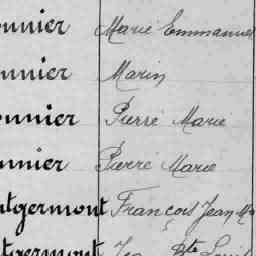 onnier Marie Emmanuel
onnier Marin
onnier Pierre Marie
onnier Pierre Marie
ntgermont François Jean Mie
ntgermont Jean Bte Louis